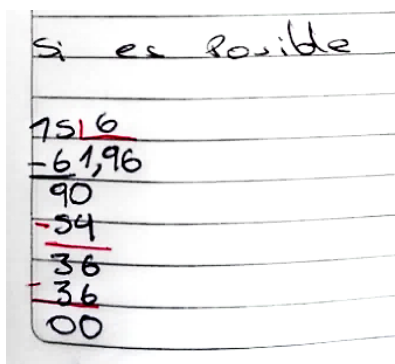 Si es Posible
15 6
-6 1,96
90
-54
36
- 36
00